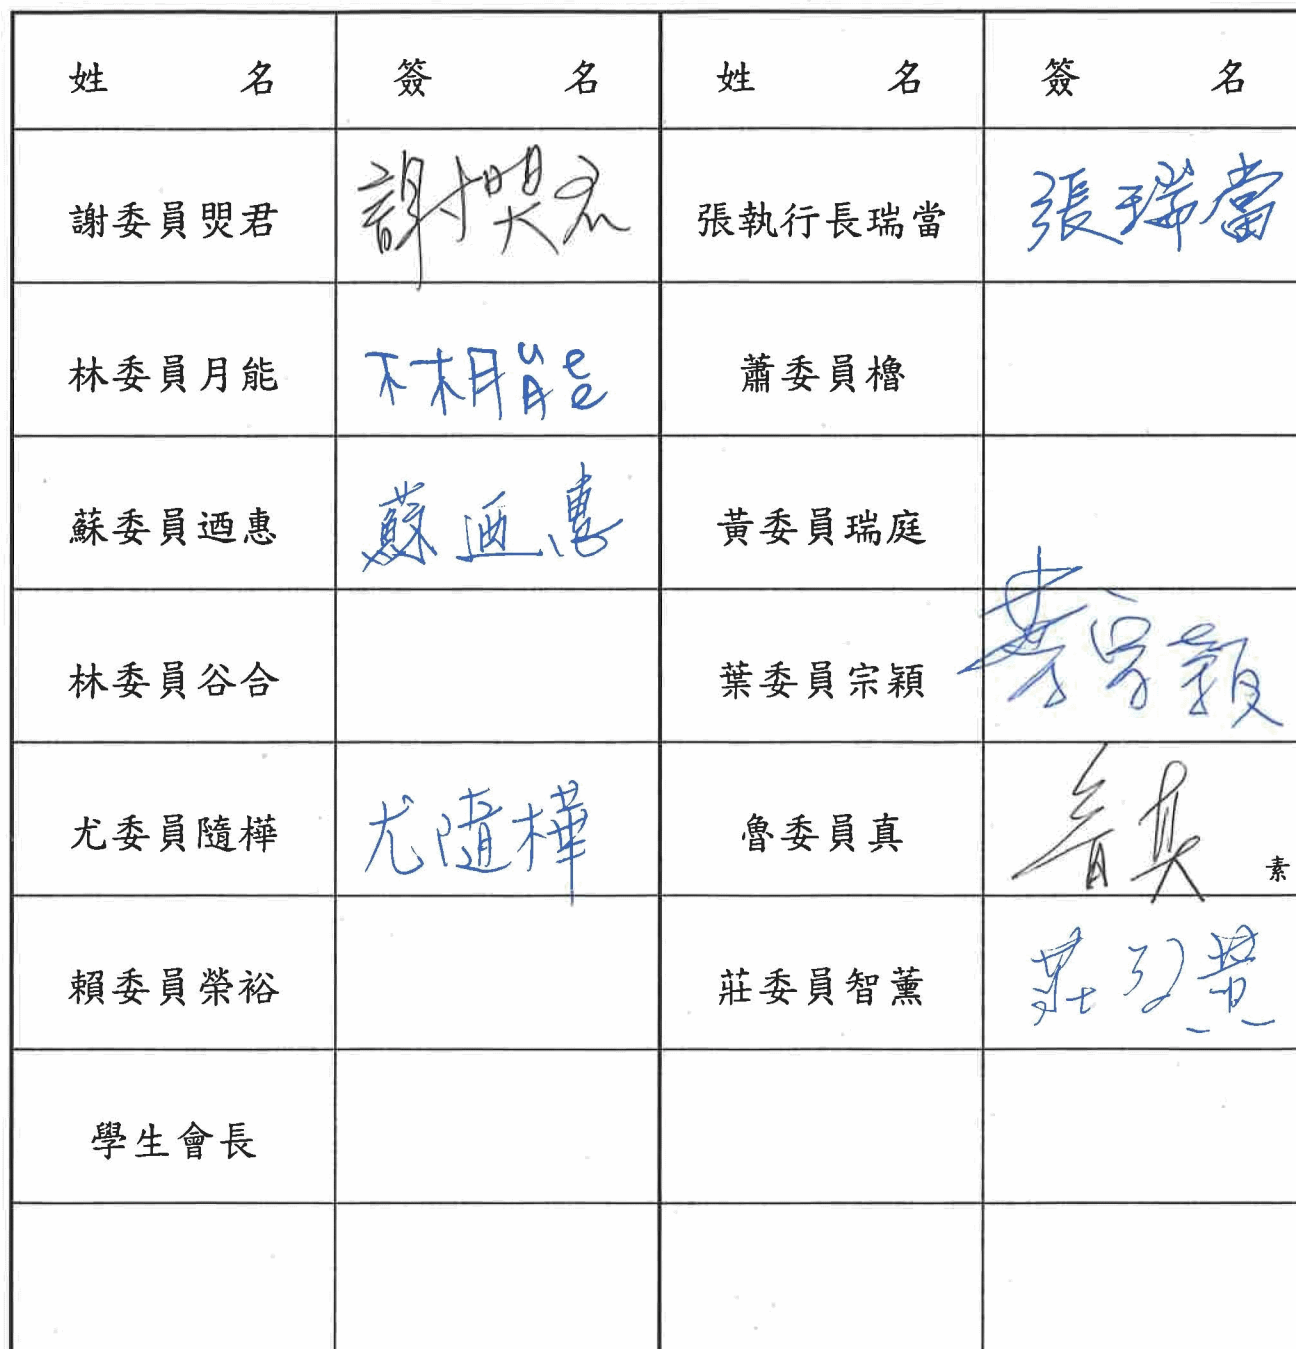 姓 名 簽 名 姓 名 簽 名
謝委員煛君 謝煛君 張執行長瑞當 張瑞當
林委員月能 林月能 蕭委員櫓
蘇委員迺惠 蘇迺惠 黃委員瑞庭
林委員谷合 葉委員宗穎 葉宗穎
尤委員隨樺 尤隨樺 魯委員真 魯真 素
賴委員榮裕 莊委員智薰 莊智薰
學生會長